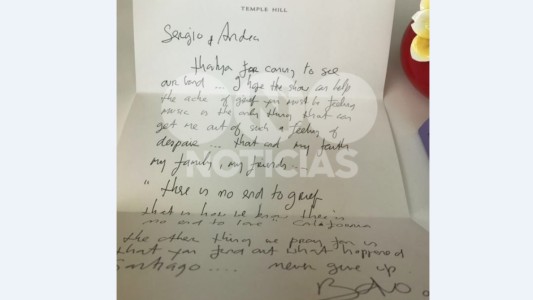 TEMPLE HILL
Sergio & Andrea
thankyou for coming to see
our band ... I hope the show can help
the ache of grief you must be feeling
music is the only thing that can
get me out of such a feeling of
despair ... that and my faith
my family, my friends ...
"there is no end to grief
that is how we know there is
no end to love" California
the other thing we pray for is
that you find out what happened
Santiago .... never give up
Bono
NOTICIAS